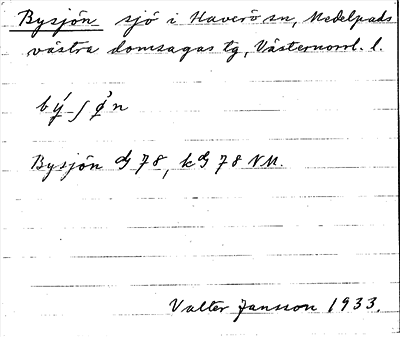 Bysjön sjö i Haverö sn, Medelpads
västra domsagas tg, Västernorrl. l.
bý ʃø̀n
Bysjön G 78, kG 78 NM.
Valter Jansson 1933.